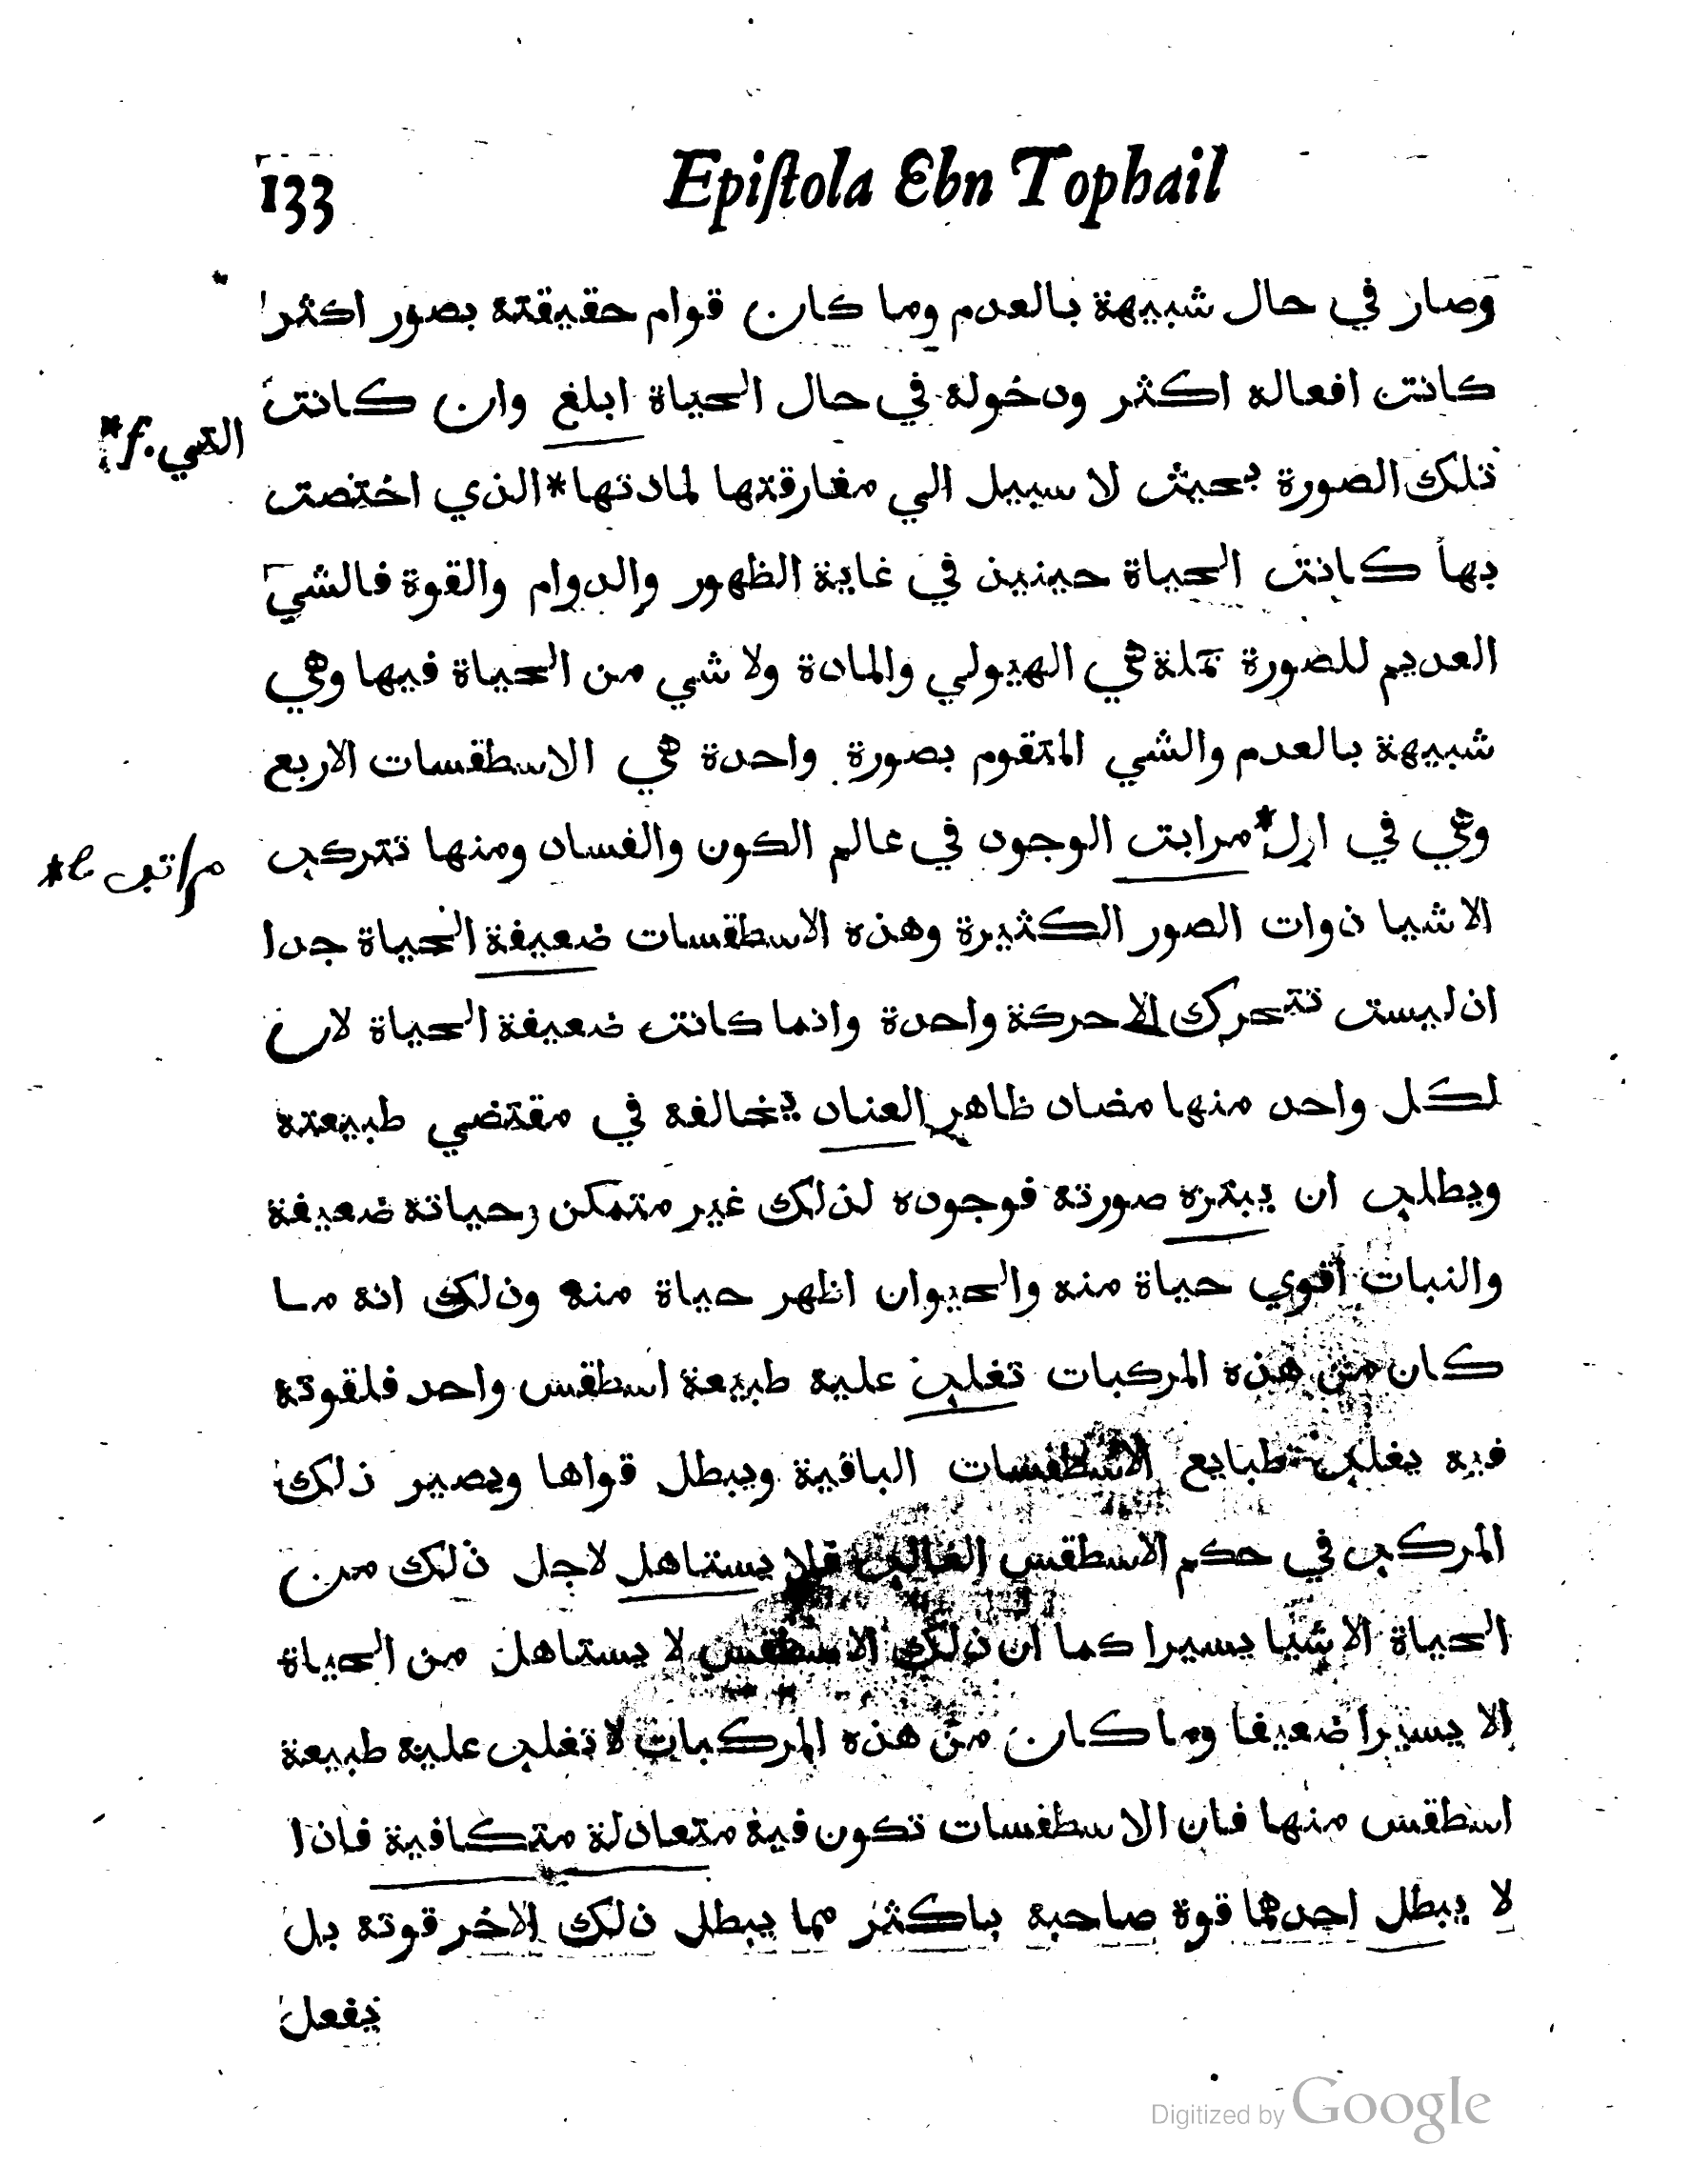 133
Epiſtola Ebn Tophail
وصار في حال شبيهة بالعدم وما كان قوام حقيقته بصور اكثر
كانت افعاله اكثر ودخوله في حال الحياة ابلغ وان كانت
*f. التي
تلك الصورة بحيث لا سبيل الي مفارقتها لمادتها*الذي اختصت
بها كانت الحياة حينين في غاية الظهور والدوام والقوة فالشي
العديم للصورة جملة هي الهيولي والمادة ولا شي من الحياة فيها وهي
شبيهة بالعدم والشي المتقوم بصورة واحدة هي الاسطقسات الاربع
وهي في اول*مرابت الوجود في عالم الكون والفساد ومنها تتركب
* مراتب
الاشيا ذوات الصور الكثيرة وهذه الاسطقسات ضعيفة الحياة جدا
اذ ليست تتحرك الا حركة واحدة وانما كانت ضعيفة الحياة لان
لكل واحد منها مضاد ظاهر العناد يخالفه في مقتضي طبيعته
ويطلب ان يبتزه صورته فوجوده لذلك غير متمكن وحياته ضعيفة
والنبات أقوي حياة منه والحيوان اظهر حياة منه وذلك انه ما
كان من هذه المركبات تغلب عليه طبيعة اسطقس واحد فلقوته
فيه يغلب طبايع الاسطقسات الباقية ويبطل قواها ويصير ذلك
المركب في حكم الاسطقس الغالب فلا يستاهل لاجل ذلك من
الحياة الا شيا يسيرا كما ان ذلك الاسطقس لا يستاهل من الحياة
الا يسيرا ضعيفا وما كان من هذه المركبات لا تغلب عليه طبيعة
اسطقس منها فان الاسطقسات تكون فيه متعادلة متكافية فاذا
لا يبطل احدهما قوة صاحبه باكثر مما يبطل ذلك الاخر قوته بل
يفعل
Digitized by Google